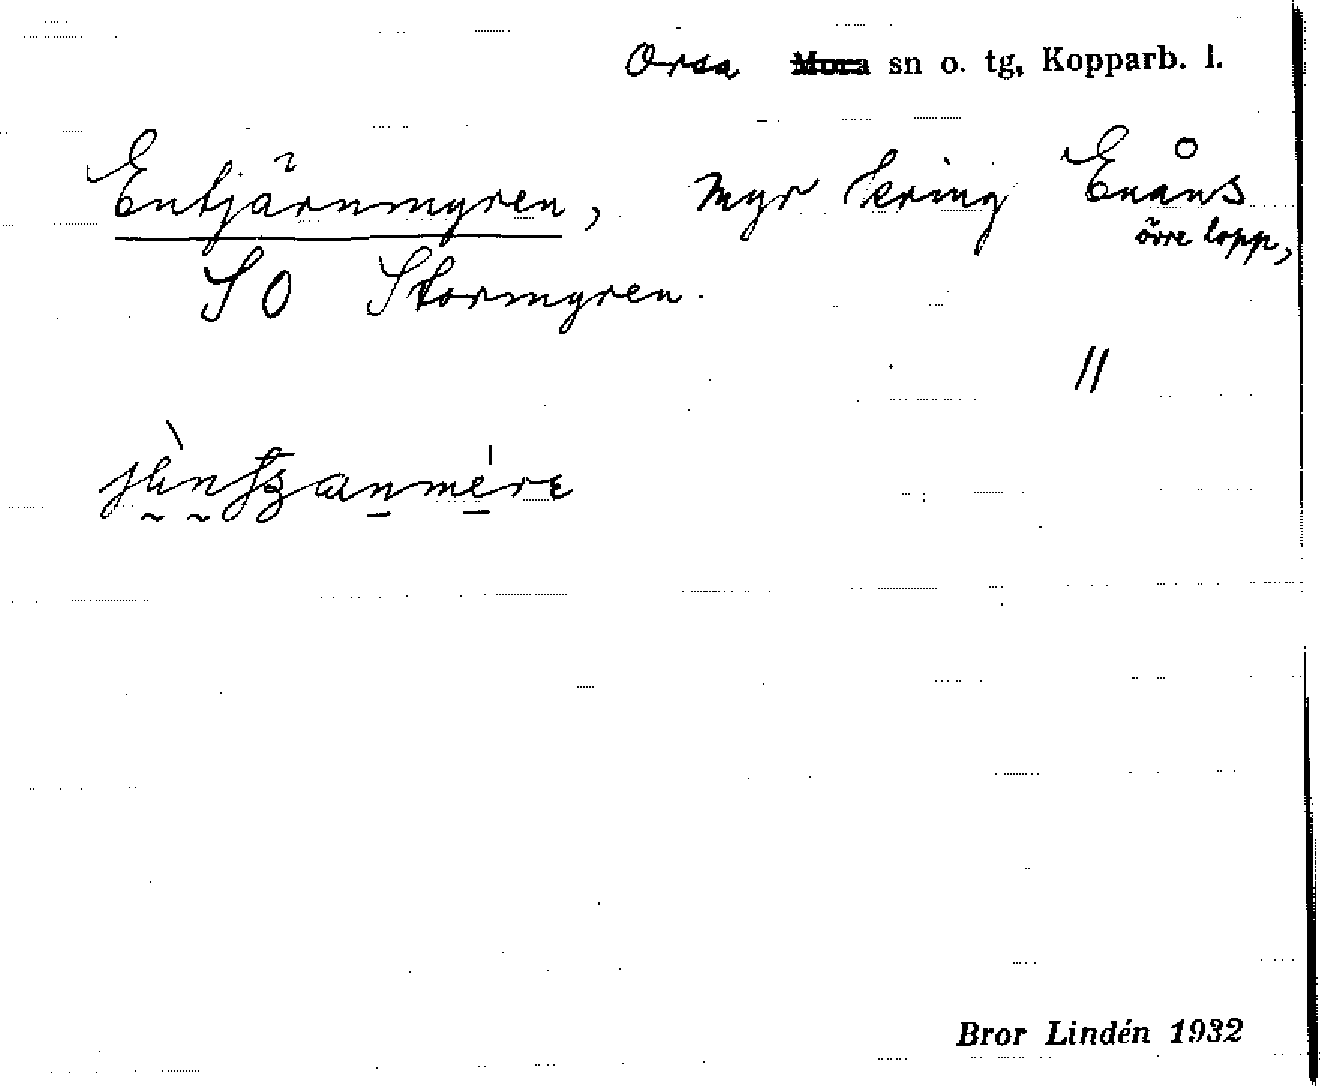 Orsa Mora sn o. tg, Kopparb. l.
Entjärnmyren, myr kring Enåns
övre lopp,
SO Stormyren.
//
Bror Lindén 1932